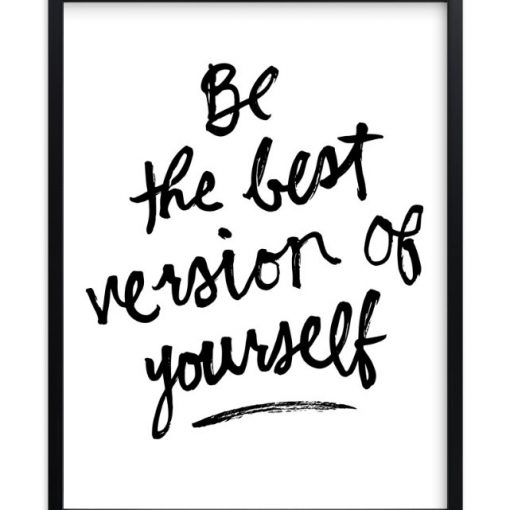 Be
the best
version of
yourself